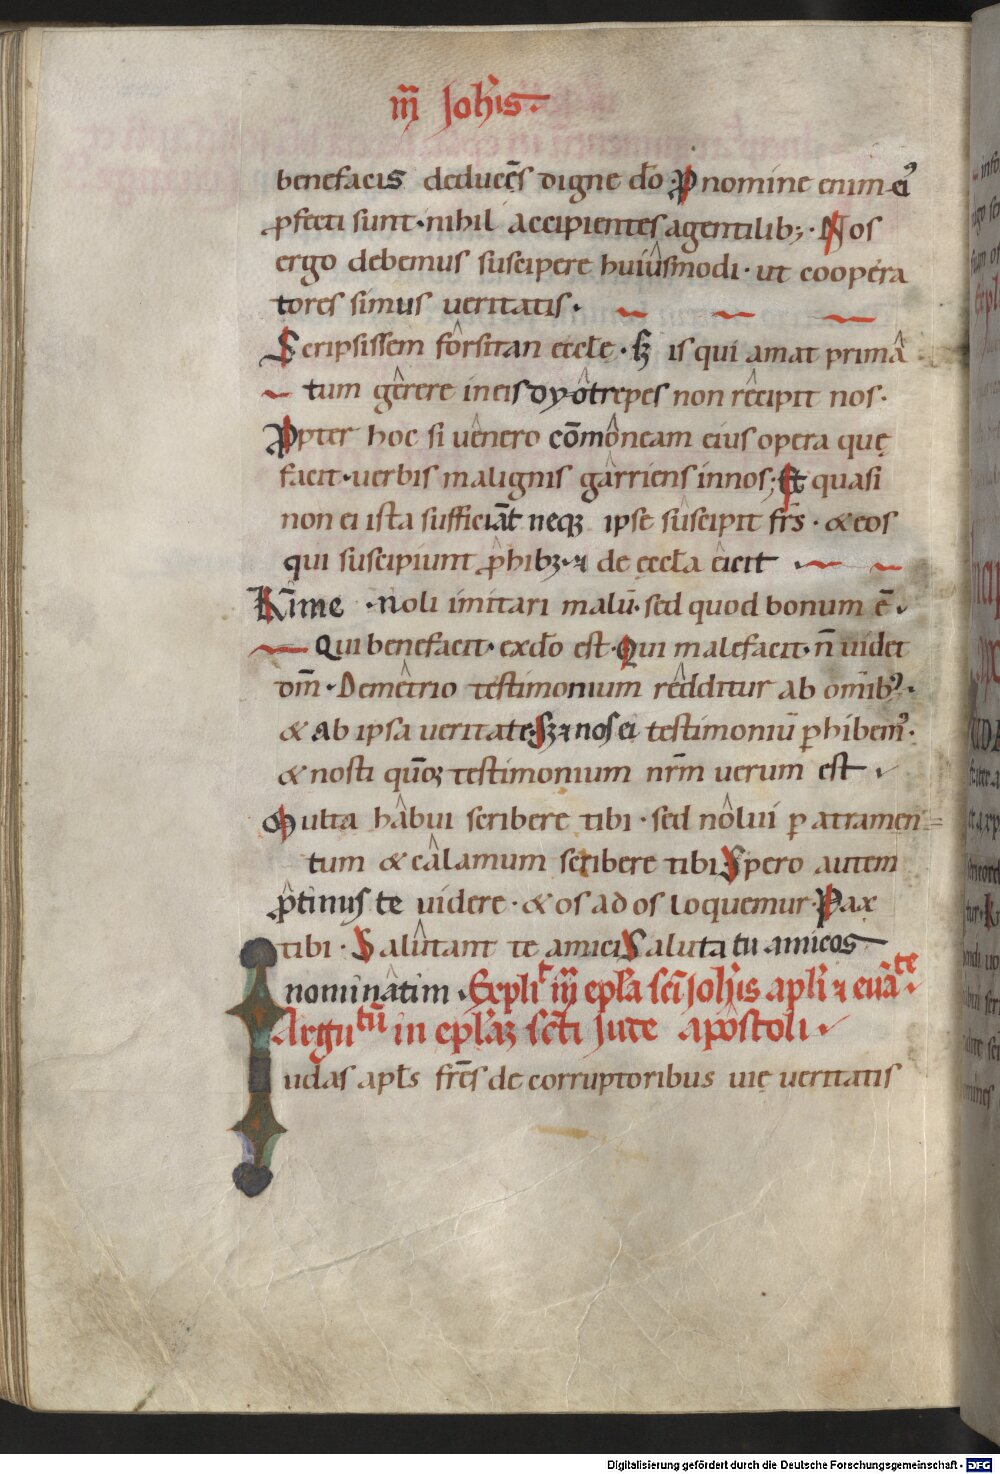 iij Joħis·
benefacis deducẽs digne dõ·ꝓ nomine enim eiꝰ
ꝓfecti sunt·nihil accipientes agentilib;·Nos
ergo debemus suscipere huiusmodi·ut coopera
tores simus ueritatis·
Scripsissem forsitan eccłe·sꝫ is qui amat primâ
tum gerere ineis dyotrepes non recipit nos·
Ꝓpter hoc si uenero cõmoneam eius opera quę
facit·uerbis malignis garriens innos;Et quasi
non ei ista sufficiãt neqꝫ ipse suscipit fr̃s·&eos
qui suscipiunt ꝓhibꝫ·⁊ de eccła eicit·
Kr̃ime·noli imitari malũ·sed quod bonum ẽ·
Qui benefacit·exdõ est·Qui malefacit·ñ uidet
dm̃·Demetrio testimonium redditur ab omĩbꝰ·
&ab ipsa ueritate·Sꝫ⁊nos ei testimoniũ ꝑhibemꝰ·
&nosti qũoꝫ testimonium nr̃m uerum est
Multa habui scribere tibi·sed nolui ꝑ atramen=
tum & calamum scribere tibi·Spero autem
ꝓtinus te uidere·&os ad os loquemur·Pax
tibi·Salutant te amici·Saluta tu amicos
nominatim·Explic̃ iij epła sc̃i Joħis apłi ⁊ euãte·
Argutũ in epłaꝫ sc̃ti Jute apostoli
Iudas apłs fr̃es de corruptoribus uię ueritatis
Digitalisierung gefördert durch die Deutsche Forschungsgemeinschaft - DFG